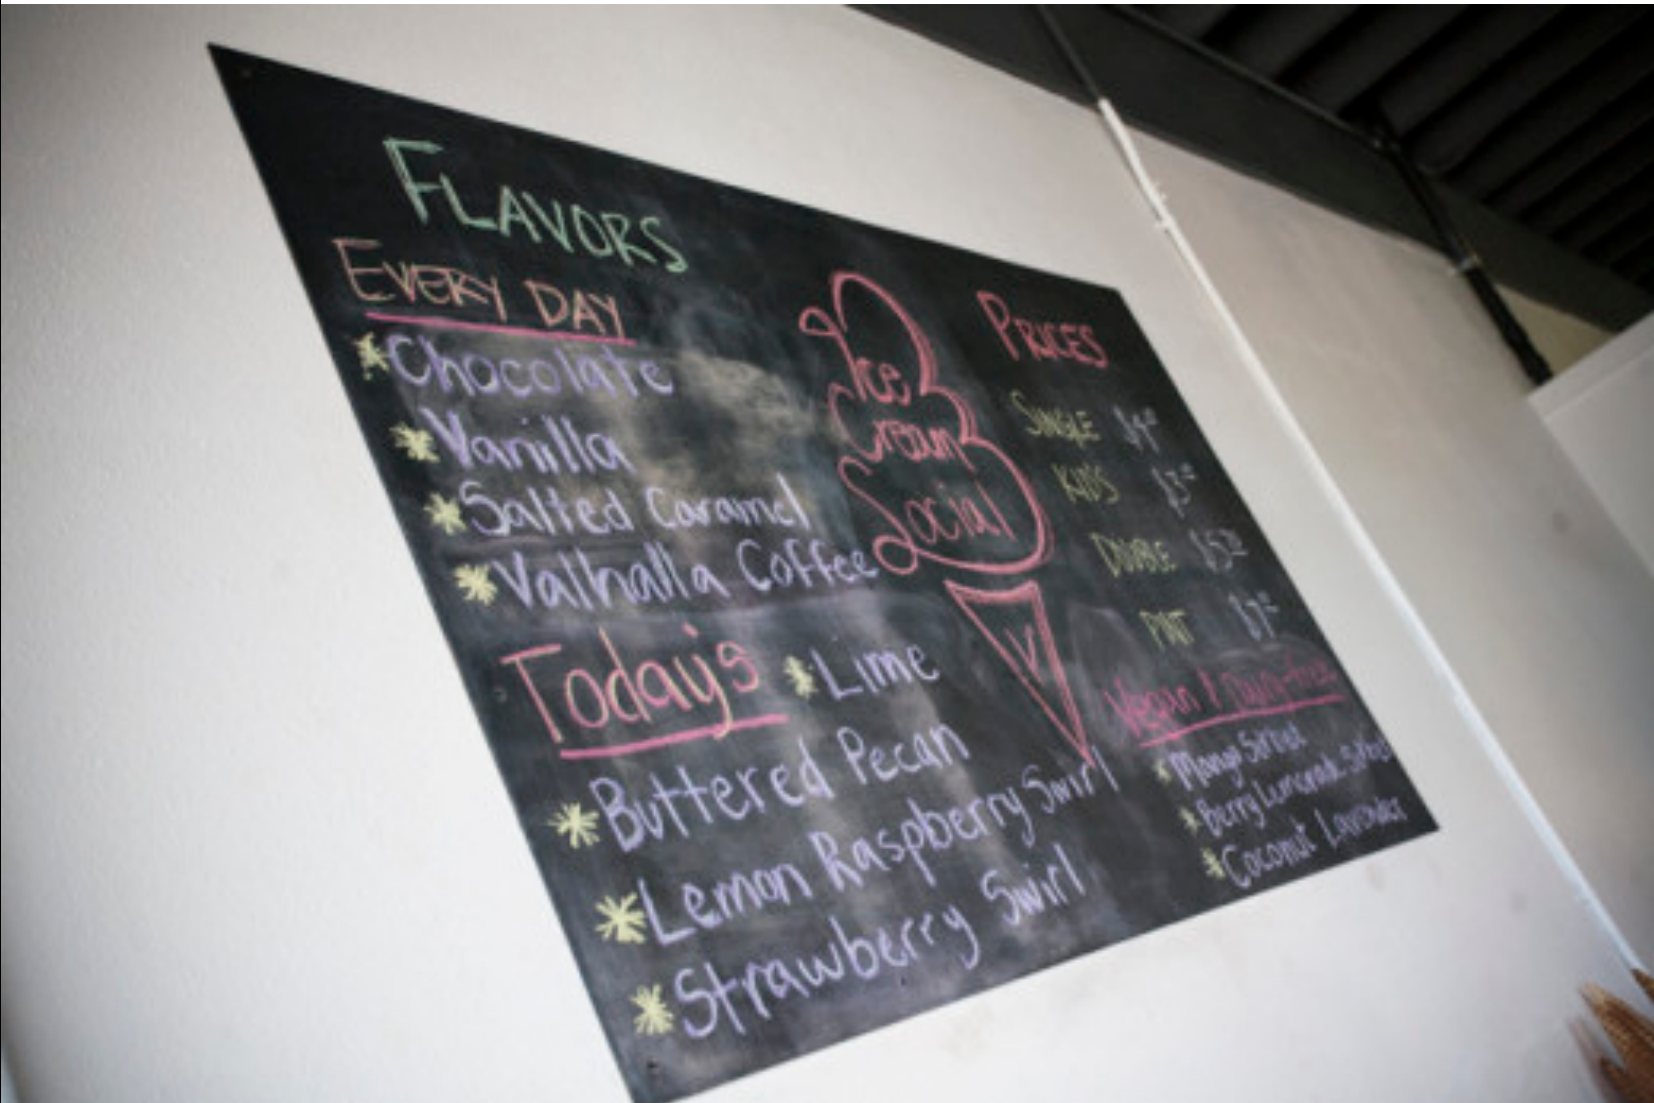 FLAVORS
EVERY DAY
*Chocolate
*Vanilla
*Salted Caramel
*Valhalla Coffee
Today's
*Lime
*Buttered Pecan
*Lemon Raspberry Swirl
*Strawberry Swirl
Ice
Cream
Social
PRICES
SINGLE $4
KIDS $3
DOUBLE $5
PINT
Vegan / Dairy-Free
*Mango Sorbet
*Berry Lemonade Sorbet
*Coconut Lavender